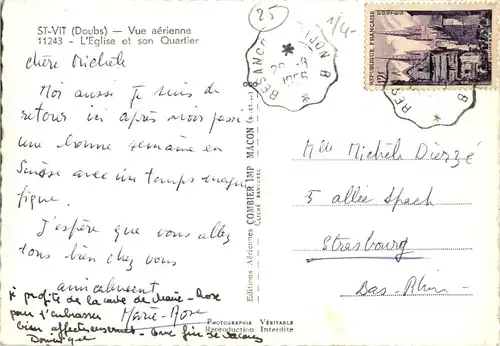 ST-VIT (Doubs) — Vue aérienne
11243 - L'Eglise et son Quartier
25
1/4-
chère Michèle
Moi aussi je suis de
retour ici après avoir passé
une bonne semaine en
Suisse avec un temps magni
fique.
J'espère que vous allez
tous bien chez vous
amicalement
Marie-Rose
je profite de la carte de Marie-Rose
pour t'embrasser
bien affectueusement
Editions Aériennes COMBIER IMP. MACON
CLICHÉ RANCUREL
PHOTOGRAPHIE VÉRITABLE
Reproduction Interdite
BESANCON
1956
RÉPUBLIQUE FRANÇAISE
Mlle Michèle
5 allée Spach
Strasbourg
Bas-Rhin-